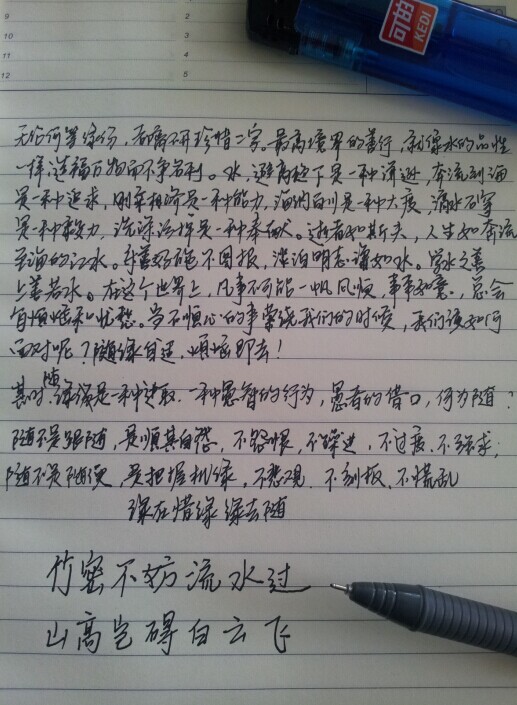 9
10
11
12
5
可由
KEDI
无论何等缘份，都离不开珍惜二字。最高境界的善行，就像水的品性
一样造福万物而不争名利。水，避高趋下是一种谦逊，奔流到海
是一种追求，刚柔相济是一种能力，海纳百川是一种大度，滴水石穿
是一种毅力，洗涤污浊是一种奉献。逝者如斯夫，人生如奔流
至海的江水。乐善好施不图报，淡泊明志谦如水。学水之善
上善若水。在这个世界上，凡事不可能一帆风顺，事事如意，总会
有烦恼和忧愁。当不顺心的事萦绕我们的时候，我们该如何
面对呢？随缘自适，烦恼即去！
其时随缘是一种进取，一种愚智的行为，愚者的借口，何为随？
随不是跟随，是顺其自然，不怨恨，不躁进，不过度，不强求；
随不是随便，是把握机缘，不悲观，不刻板，不慌乱
缘在惜缘 缘去随
竹密不妨流水过
山高岂碍白云飞